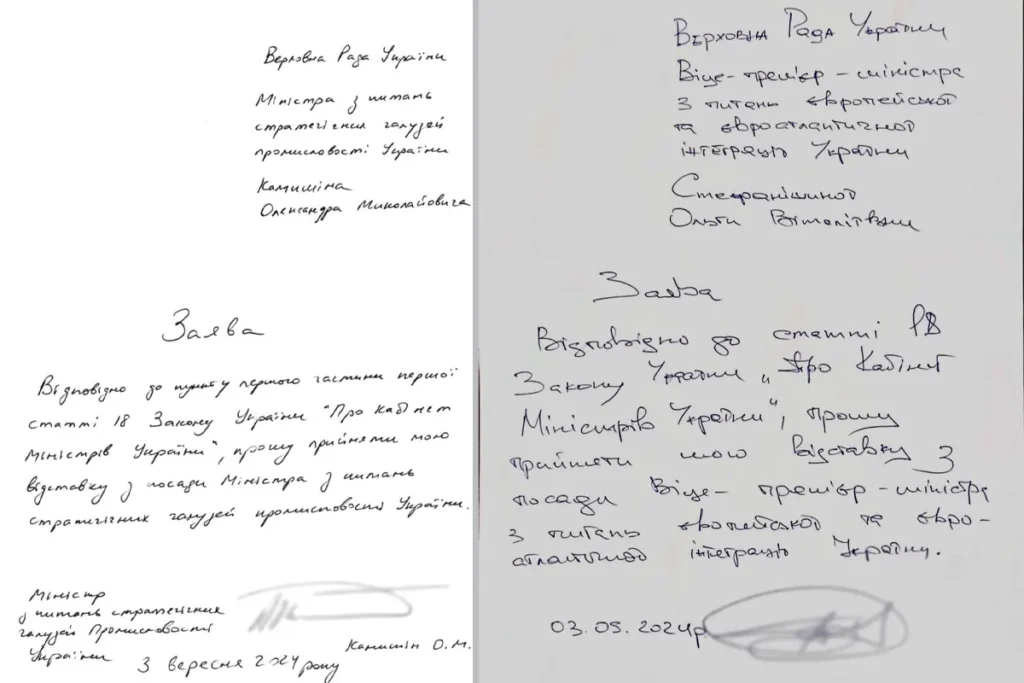 Верховна Рада України
Міністра з питань
стратегічних галузей
промисловості України
Камишіна
Олександра Миколайовича
Заява
Відповідно до пункту першого частини першої
статті 18 Закону України "Про Кабінет
Міністрів України", прошу прийняти мою
відставку з посади Міністра з питань
стратигічних галузей промисловості України.
Міністр
з питань стратегічних
галузей Промисловості
України
Камишін О.М.
3 вересня 2024 року
Верховна Рада України
Віце-прем'єр-міністра
з питань європейської
та євроатлантичної
інтеграції України
Стефанішиної
Ольги Віталіївни
Заява
Відповідно до статті 18
Закону України „Про Кабінет
Міністрів України", прошу
прийняти мою відставку з
посади Віце-прем'єр-міністра
з питань європейської та євро-
атлантичної інтеграції України.
03.09.2024р